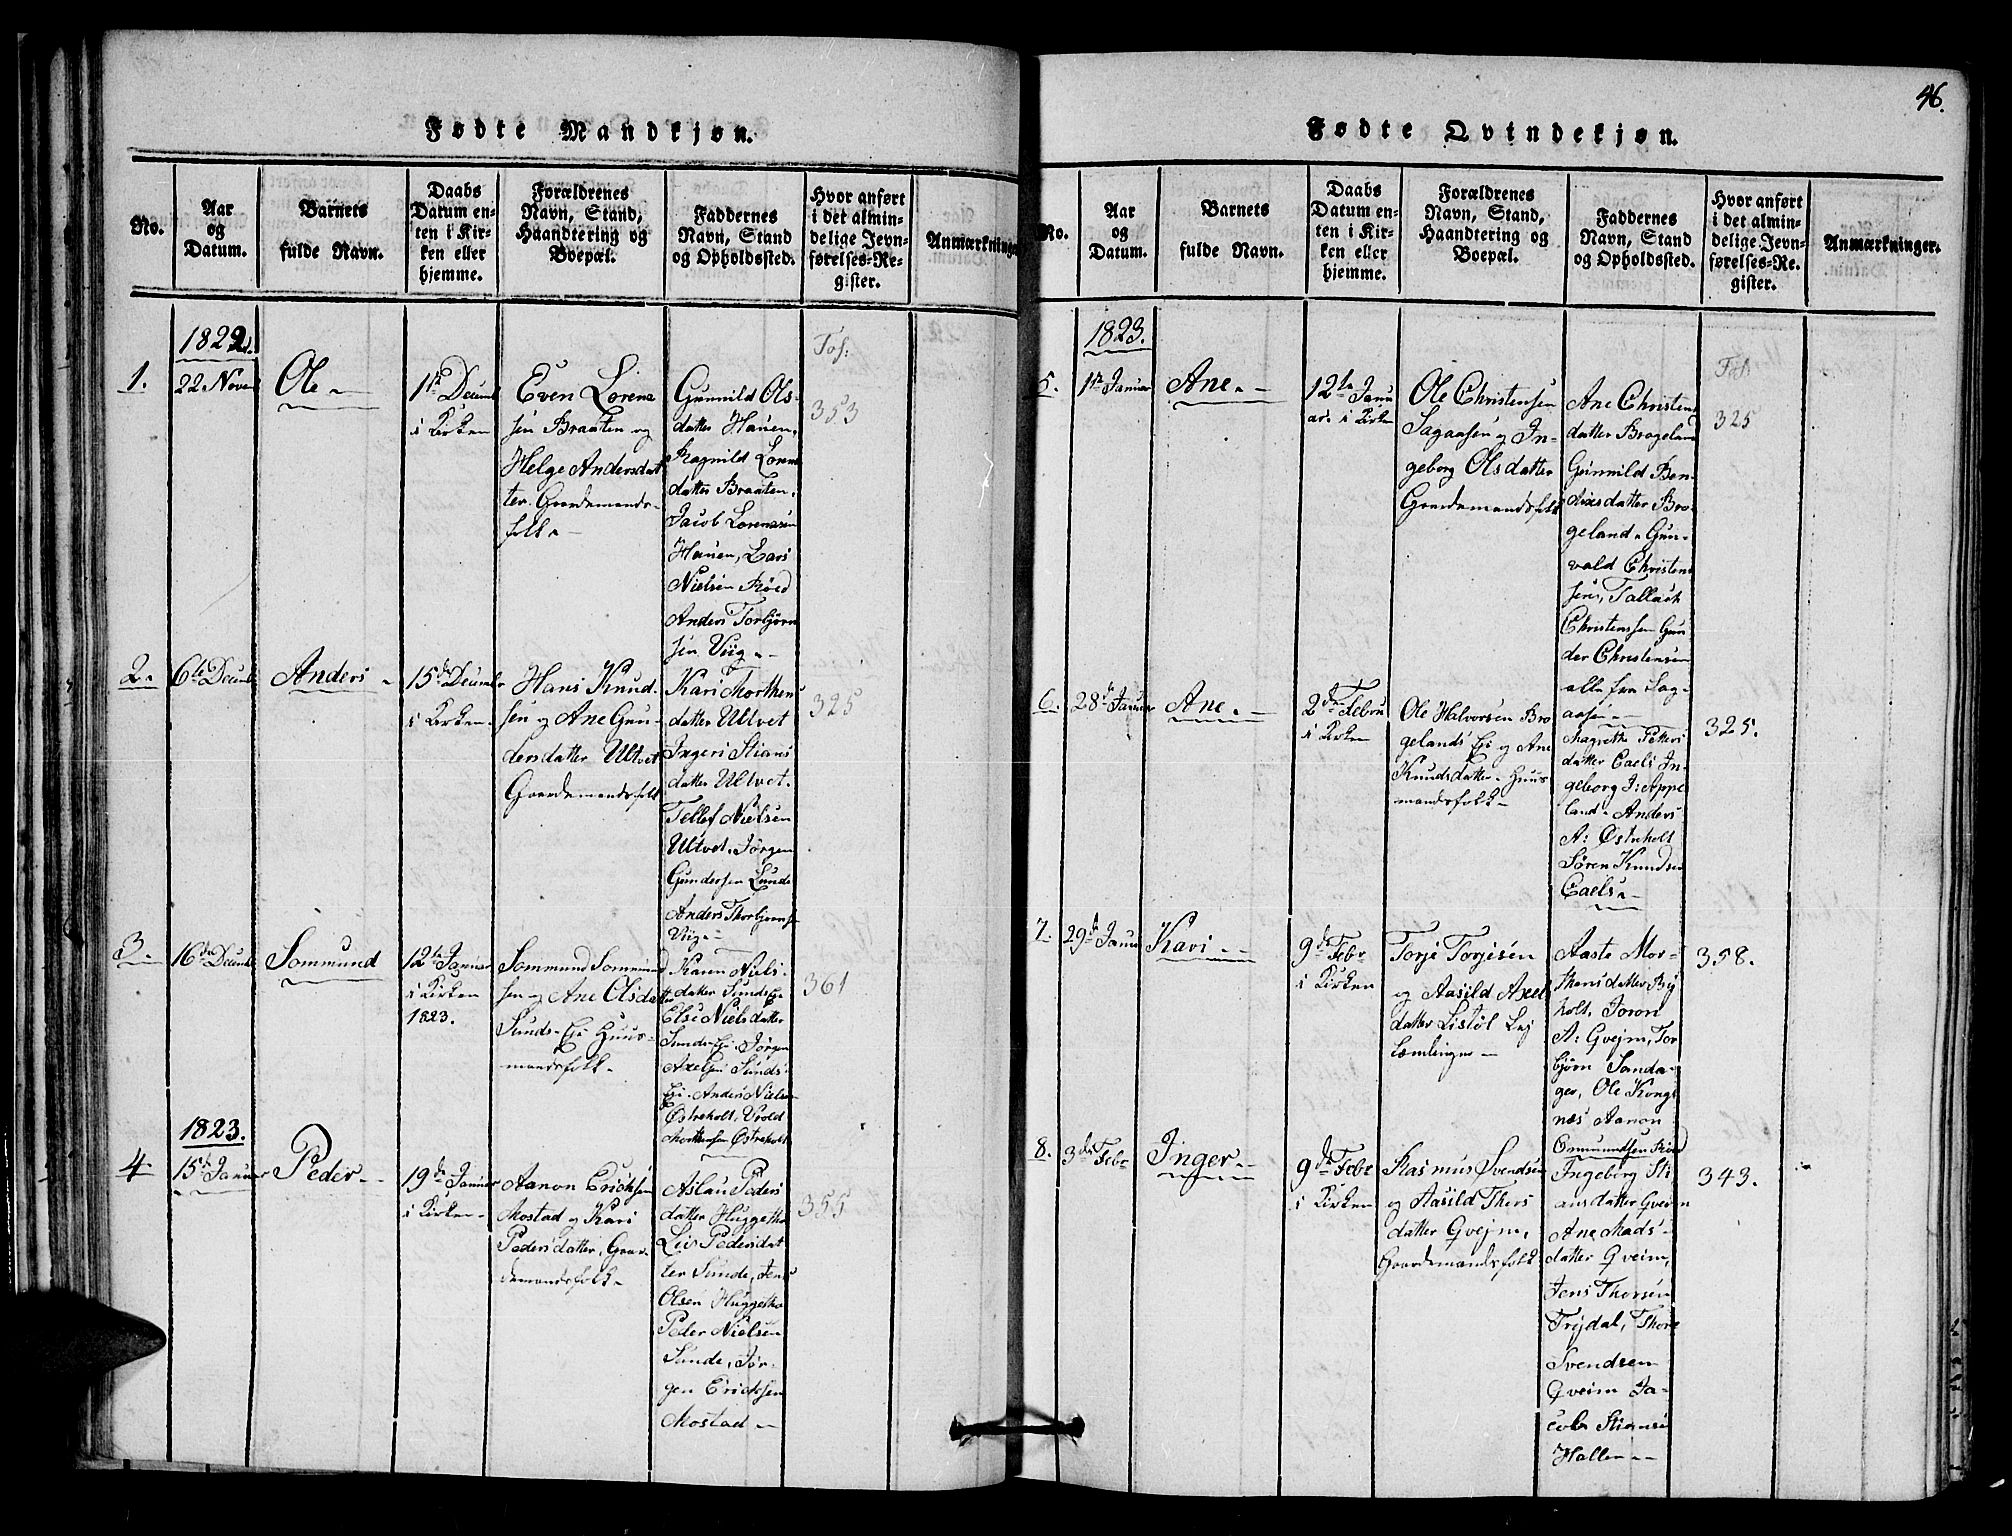 46.
Fødte Mandkjøn.
No.
Aar
og
Datum.
Barnets
fulde Navn.
Daabs
Datum en-
ten i Kir-
ken eller
hjemme.
Forældrenes
Navn, Stand,
Haandtering og
Boepæl.
Faddernes
Navn, Stand
og Opholdssted.
Hvor anført
i det almin-
delige Jevn-
førelses-Re-
gister.
Anmærkninge
1822.
1.
22 Novem
Ole
1ste Decemb
i Kirken
Even Loren
sen Braaten og
Helge Andersdat
ter. Gaardmands-
folk
Gunnild Ols-
datter Hauen,
Ragnild Loren
datter Braaten,
Jacob Lorenssen
Hauen, Lars
Nielsen Røed
Anders Torbjørn
sen Viig
Fol:
353
2.
6te Decemb
Anders
15de Decembr
i Kirken
Hans Knud-
sen og Ane Gun-
dersdatter Ultvet
Gaardmandsfolk
Kari Morthens
datter Ultvet
Ingeri Stians
datter Ultvet.
Tellef Nielsen
Ultvet. Jørgen
Gundersen Lunde
Anders Thorbjørns
Viig
325
3.
16de Decemb
Sommund
12te Januar
i Kirken
1823.
Sommund Sommund
sen og Ane Olsdat
Sunds-Eje Huus-
mandsfolk
Karen Niels-
datter Sunds Eje
Else Nielsdatter
Sunds Eje. Jørgen
Axelsen Sunds-
Eje. Anders Nielsen
Østreholt, Wrold
Morthensen Østreholt
361
1823.
4.
15de Januar
Peder
19de Januar
i Kirken
Aanon Ericksen
Mostad og Kari
Pedersdatter, Gaar-
demandsfolk
Aslau Peders
datter Huggetho
Liv Pedersdat
ter Sunde, Jens
Olsen Huggetho
Peder Nielsen
Sunde, Jør-
gen Ericksen
Mostad
355
Fødte Qvindekjøn.
No.
Aar
og
Datum.
Barnets
fulde Navn.
Daabs
Datum en-
ten i Kir-
ken eller
hjemme.
Forældrenes
Navn, Stand,
Haandtering og
Boepæl.
Faddernes
Navn, Stand
og Opholdssted.
Hvor anført
i det almin-
delige Jevn-
førelses-Re-
gister.
Anmærkninger.
1823.
5.
1ste Januar
Ane
12te Janu
ar i Kirken
Ole Christensen
Sagaasen og In-
geborg Olsdatter
Gaardemandsfolk
Ane Christens
datter Brogeland
Gunnild Ben-
dixsdatter Bro-
geland Gun-
vald Christen
sen, Tallach
Christenssen Gun
der Christensen
alle fra Sag-
aasen
Fol.
325
6.
28de Januar
Ane
2den Febru
i Kirken
Ole Halvorsen Bro
gelands Eje og Ane
Knudsdatter Huus
mandsfolk
Magrethe Petters
datter Caels In-
geborg J: Appe
land Anders
A: Østreholt
Søren Knudsen
Caels
325.
7.
29de Janu
Kari
9de Febr
i Kirken
Torje Torjesen
og Aasild Axel
datter Listøl Lej
lændinger
Aaste Mor-
thensdatter By
holt, Joron
A: Gvejm, Tor
bjørn Sanda-
ger, Ole Kongs
næs Aanon
Ommundsen Røed
358.
8.
3die Febr
Inger
9de Febr
i Kirken
Rasmus Svendsen
og Aasild Thors
datter Qvejm,
Gaardemandsfolk
Ingeborg Sti
ansdatter Gveim
Ane Mads-
datter Qveim,
Jens Thorsen
Trydal, Thore
Svendsen
Qveim Ja-
cob Stiansen
Hallen
343.